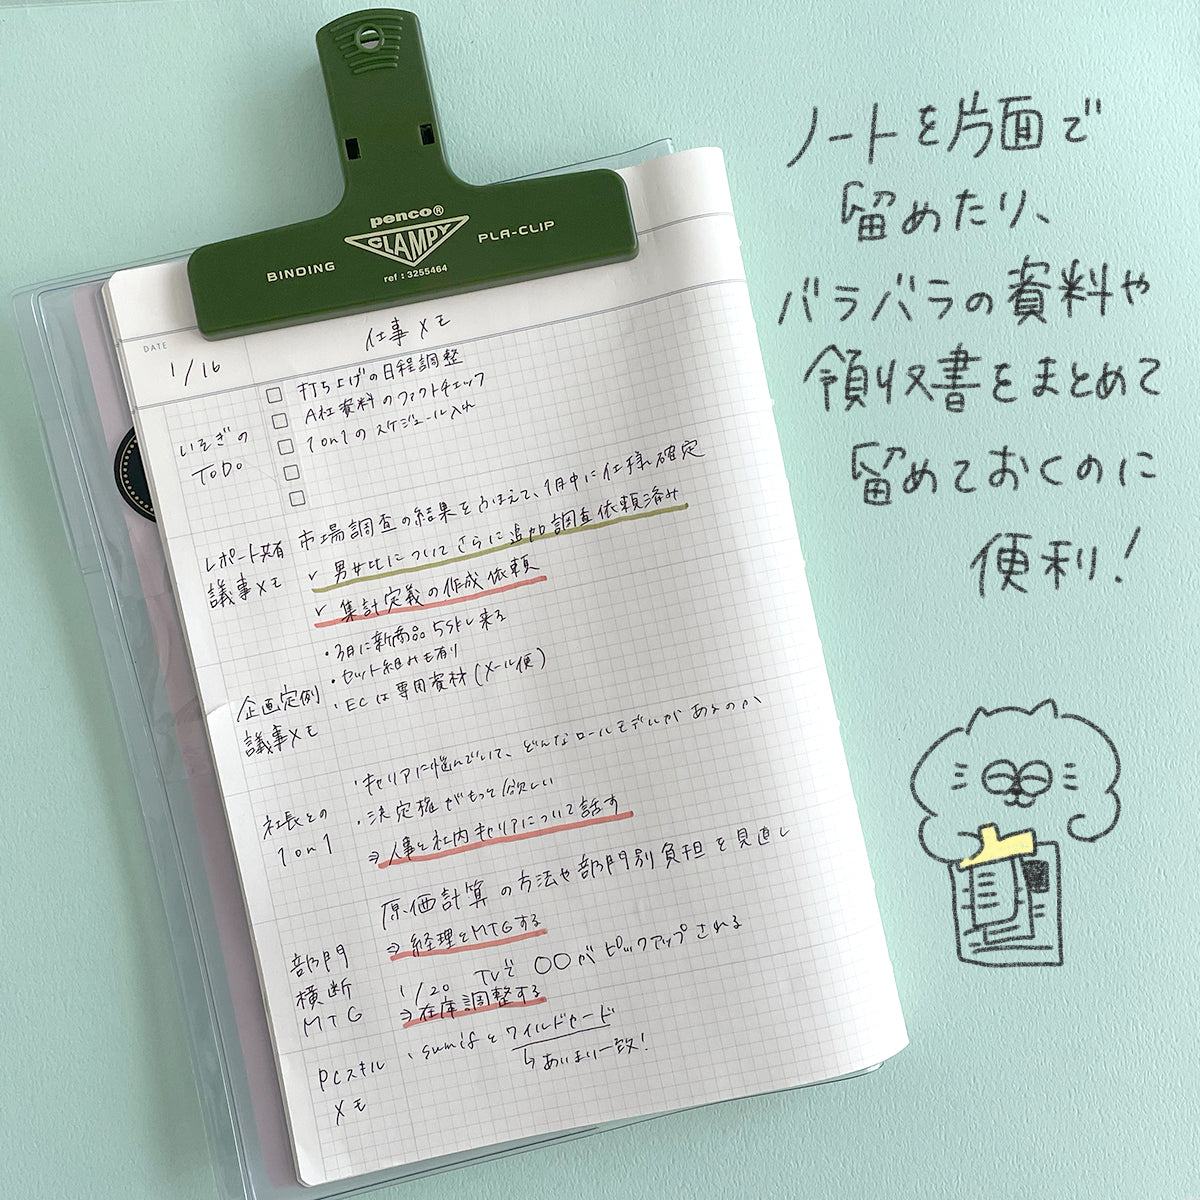 penco®
CLAMPY
BINDING
PLA-CLIP
ref : 3255464
DATE
1/16
仕事メモ
いそぎの
ToDo
打ち上げの日程調整
A社資料のファクトチェック
1on1のスケジュール入れ
レポート共有
議事メモ
市場調査の結果をふまえて、1月中に仕様確定
✓ 男女比についてさらに追加調査依頼済み
✓ 集計定義の作成依頼
企画定例
議事メモ
・3月に新商品5SKU来る
・セット組みも有り
・ECは専用資材(メール便)
社長との
1on1
・キャリアに悩んでいて、どんなロールモデルがあるのか
・決定権がもって欲しい
⇒人事と社内キャリアについて話す
部門
横断
MTG
原価計算の方法や部門別負担を見直し
⇒経理とMTGする
1/20 TVで〇〇がピックアップされる
⇒在庫調整する
PCスキル
メモ
・sumifとワイルドカード
↳あいまい一致!
ノートを片面で
留めたり、
バラバラの資料や
領収書をまとめて
留めておくのに
便利!